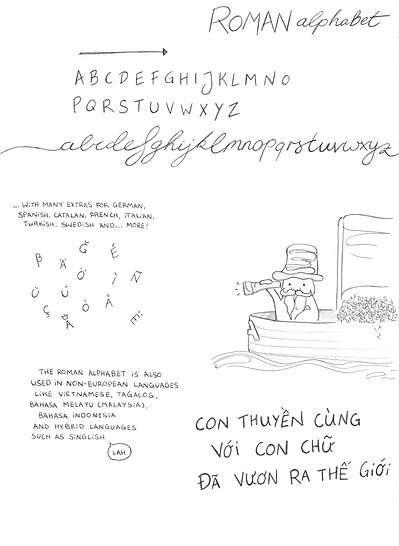 ROMAN alphabet
ABCDEFGHIJKLMNO
PQRSTUVWXYZ
abcdefghijklmnopqrstuvwxyz
... WITH MANY EXTRAS FOR GERMAN,
SPANISH, CATALAN, FRENCH, ITALIAN,
TURKISH, SWEDISH AND... MORE!
Ğ É
β Ä
Ö Ì Ñ
Ü Ú Ò Å
Ç Ë
THE ROMAN ALPHABET IS ALSO
USED IN NON-EUROPEAN LANGUAGES
LIKE VIETNAMESE, TAGALOG,
BAHASA MELAYU (MALAYSIA),
BAHASA INDONESIA
AND HYBRID LANGUAGES
SUCH AS SINGLISH
LAH
CON THUYỀN CÙNG
VỚI CON CHỮ
ĐÃ VƯƠN RA THẾ GIỚI